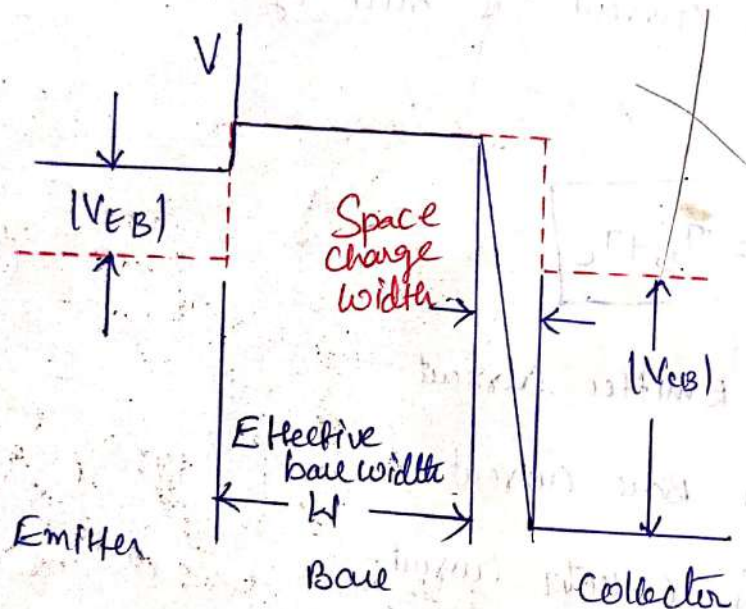 V
|VEB|
Space
charge
width
|VCB|
Effective
base width
W
Emitter
Base
Collector